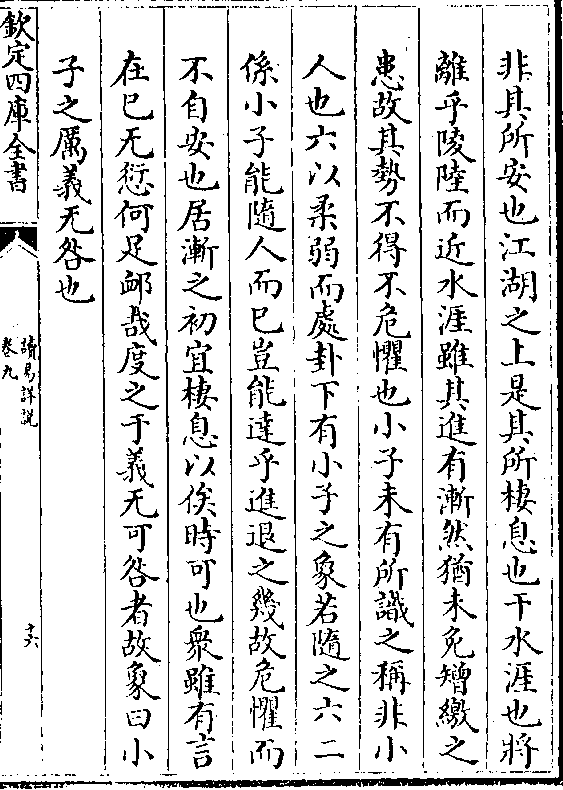 非其所安也江湖之上是其所棲息也干水涯也將
離乎陵陸而近水涯雖其進有漸然猶未免矰繳之
患故其勢不得不危懼也小子未有所識之稱非小
人也六以柔弱而處卦下有小子之象若隨之六二
係小子能隨人而已豈能達乎進退之幾故危懼而
不自安也居漸之初宜棲息以俟時可也衆雖有言
在已无愆何足卹哉度之于義无可咎者故象曰小
子之厲義无咎也
欽定四庫全書
讀易詳説
卷九
十六